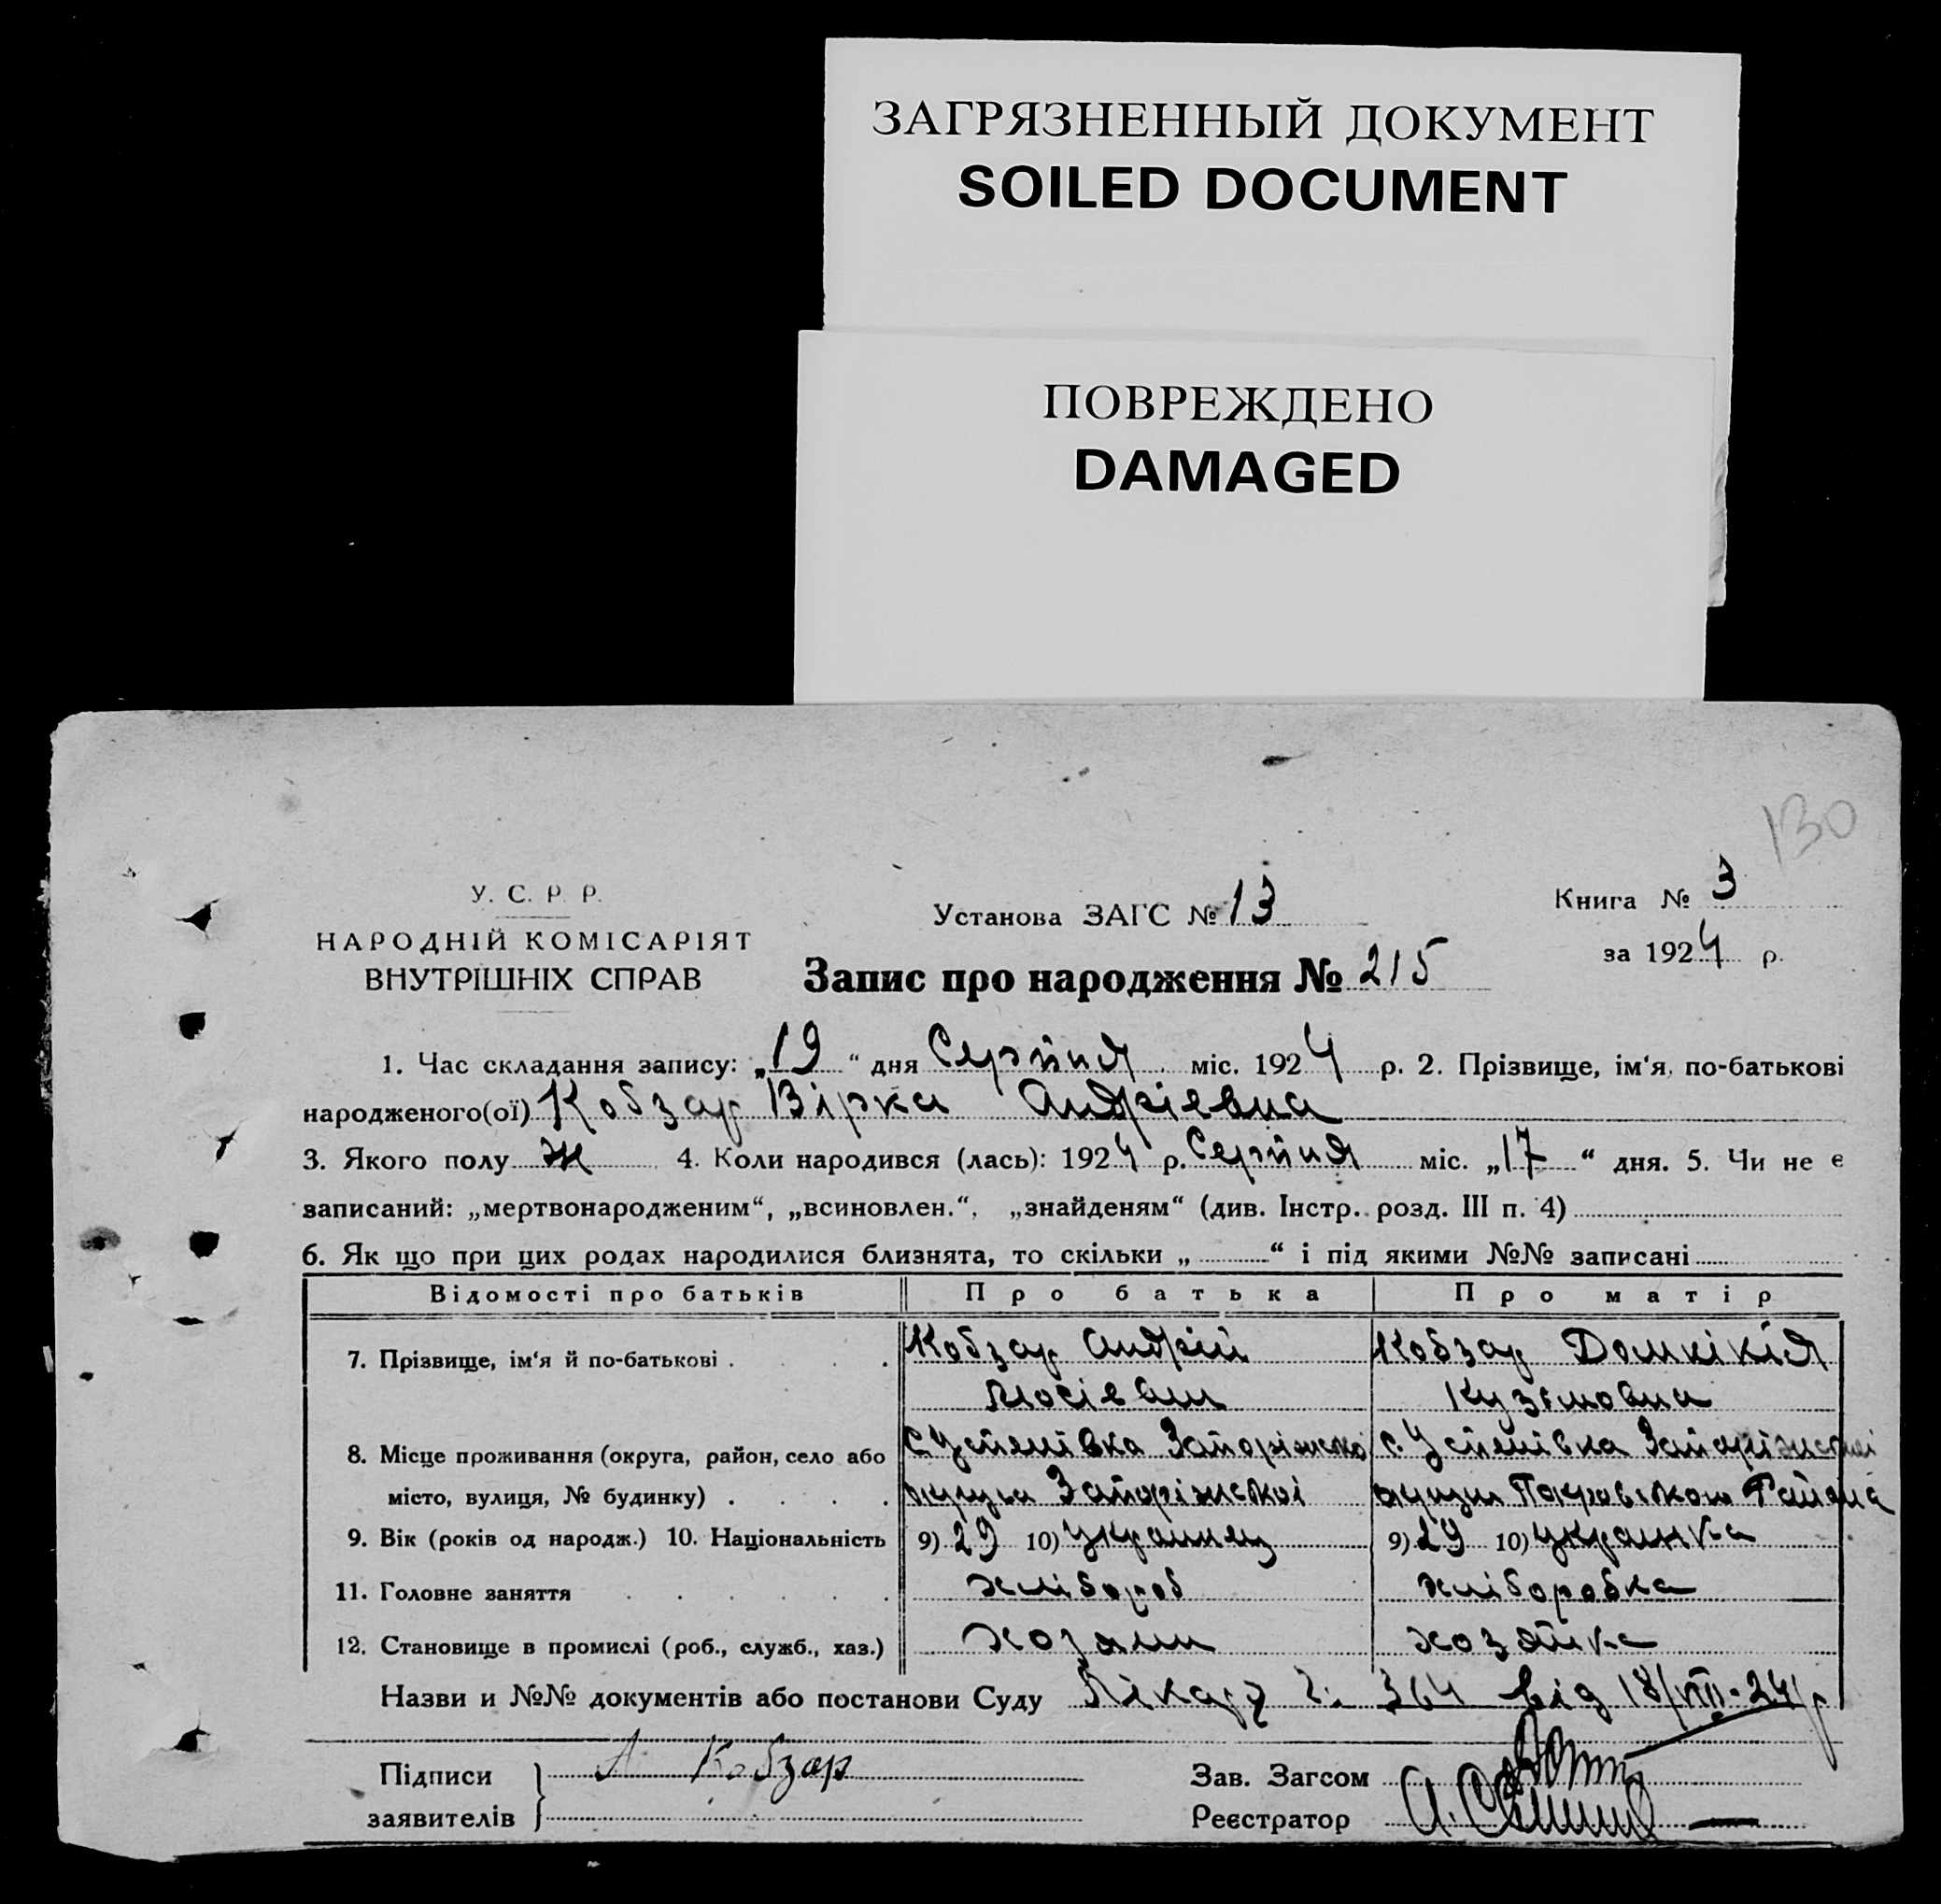 ЗАГРЯЗНЕННЫЙ ДОКУМЕНТ
SOILED DOCUMENT
ПОВРЕЖДЕНО
DAMAGED
130
У. С. Р. Р.
НАРОДНІЙ КОМІСАРІЯТ
ВНУТРІШНІХ СПРАВ
Установа ЗАГС № 13
Книга № 3
за 1924 р.
Запис про народження № 215
1. Час складання запису: „19“ дня Серпня міс. 1924 р. 2. Прізвище, ім‘я, по-батькові
народженого(ої) Кобзар Вірка Андріевна
3. Якого полу ж 4. Коли народився (лась): 1924 р. Серпня міс. „17“ дня. 5. Чи не є
записаний: „мертвонародженим“, „всиновлен.“, „знайденям“ (див. Інстр. розд. III п. 4)
6. Як що при цих родах народилися близнята, то скільки „ “ і під якими №№ записані
Відомості про батьків Про батька Про матір
7. Прізвище, ім‘я й по-батькові Кобзар Андрій Кобзар Домнікія
Мосіевич Кузьмовна
8. Місце проживання (округа, район, село або с. Успенівка Запоріжсько с. Успенівка Запоріжської
місто, вулиця, № будинку) округа Запоріжської округи Покровського Района
9. Вік (років од народж.) 10. Національність 9) 29 10) Украинец 9) 29 10) Украинка
11. Головне заняття хлібороб хліборобка
12. Становище в промислі (роб., служб., хаз.) хозяин хозяйка
Назви и №№ документів або постанови Суду 364 від 18/VIII-24 р
Підписи
заявителів
А Кобзар
Зав. Загсом
Реєстратор